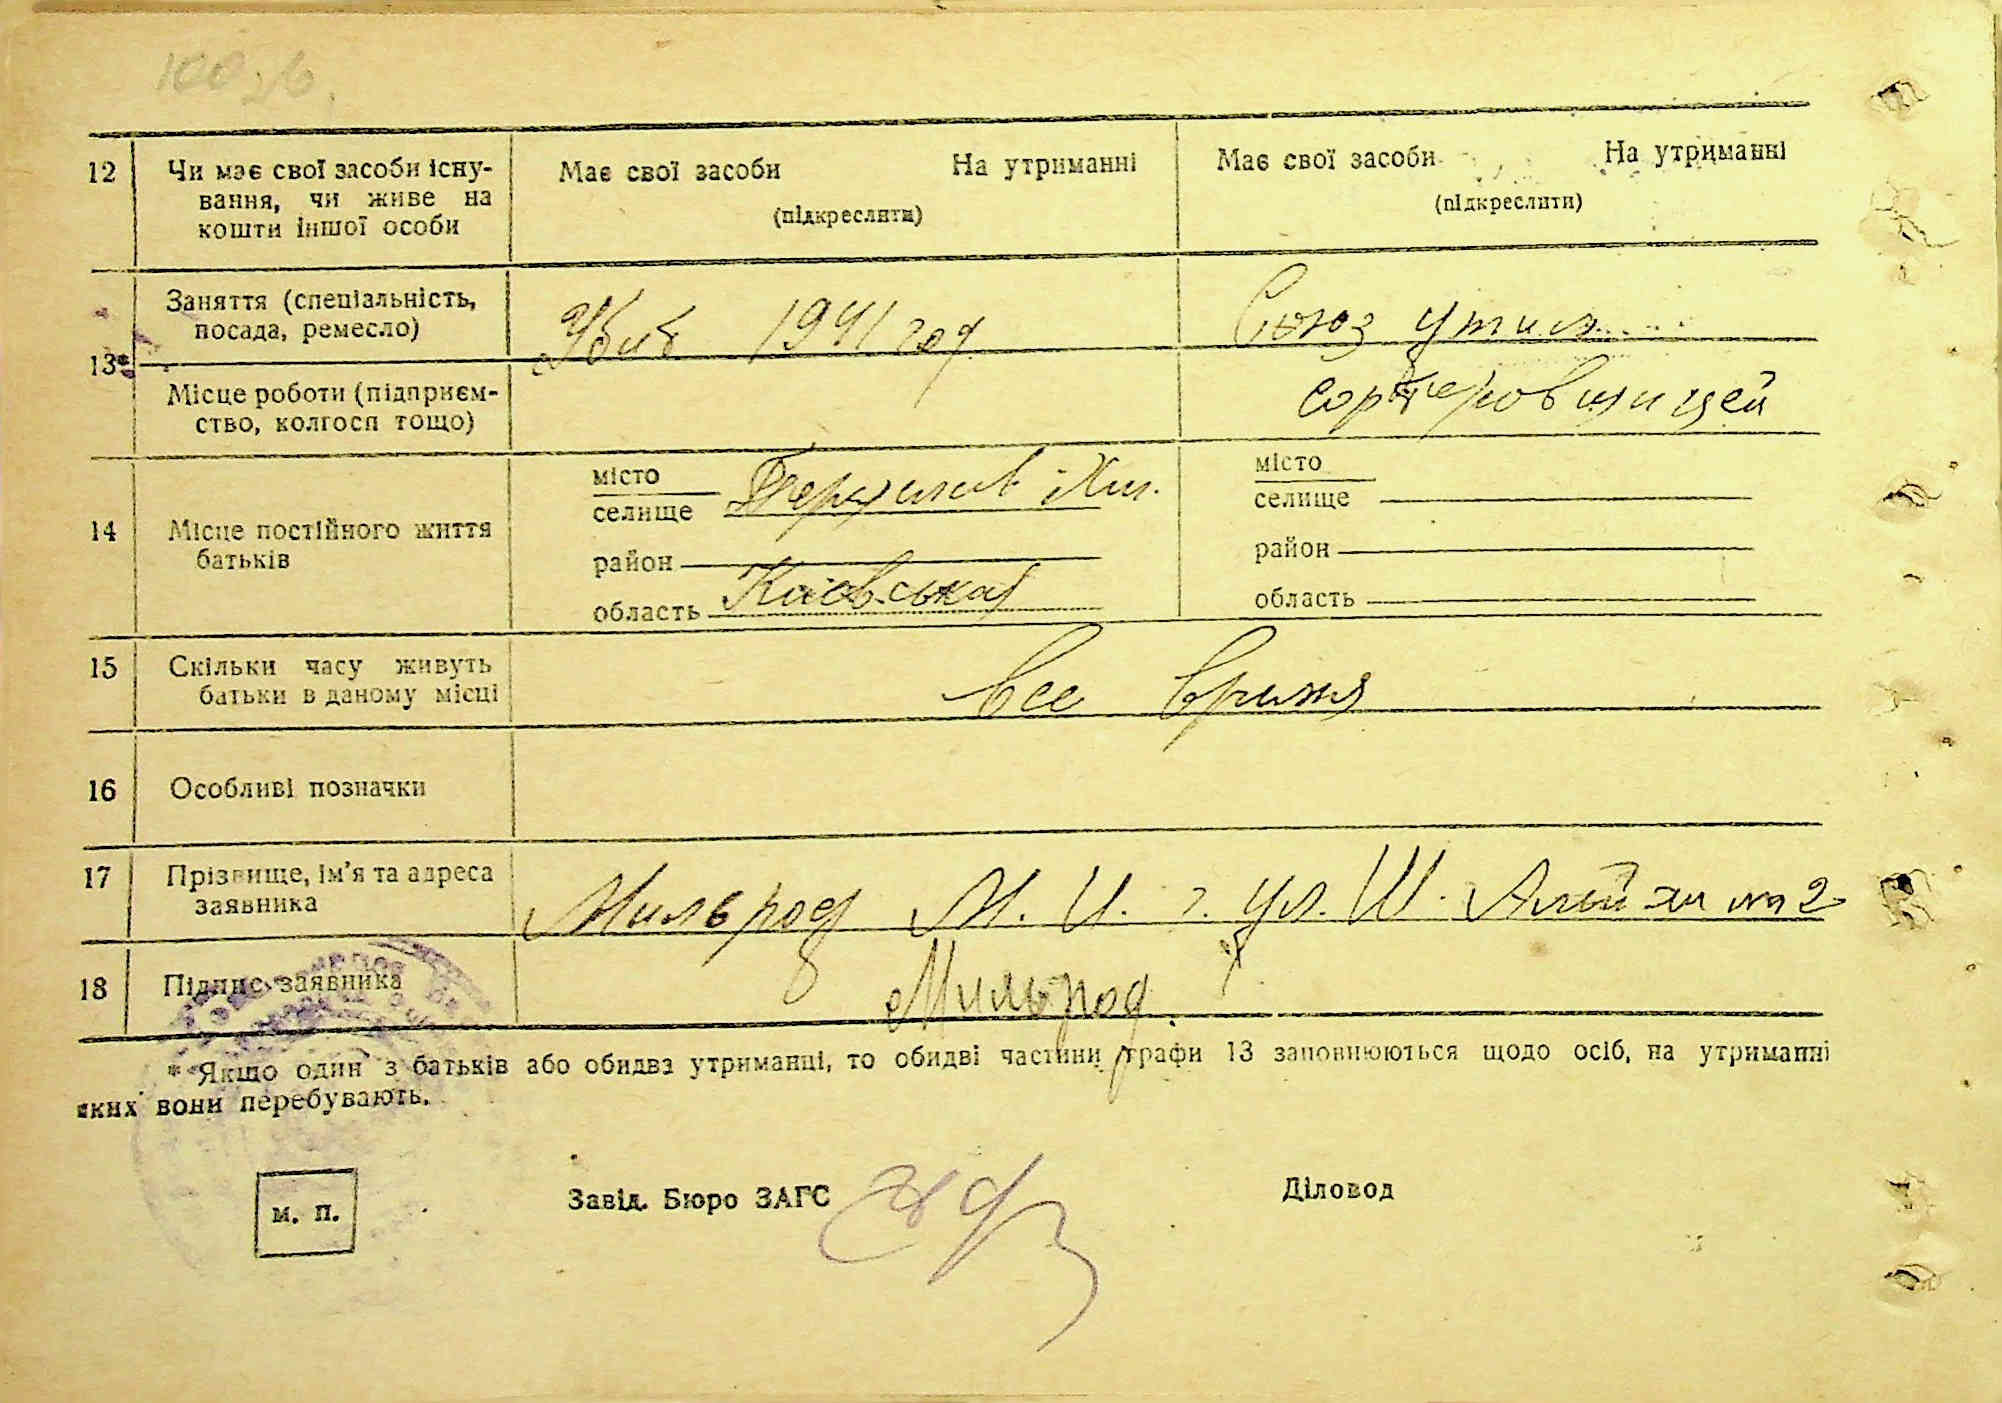 12 Чи має свої засоби існу- Має свої засоби На утриманні Має свої засоби На утриманні
вання, чи живе на (підкреслити) (підкреслити)
кошти іншої особи
13* Заняття (спеціальність, Убит 1941 год Союз утил
посада, ремесло)
Місце роботи (підприєм- сортировщицей
ство, колгосп тощо)
14 Місце постійного життя місто місто
батьків селище селище
район район
область Киевська область
15 Скільки часу живуть все время
батьки в даному місці
16 Особливі позначки
17 Прізвище, ім'я та адреса Мильрод М. И. г. ул. Ш. Алейхем 2
заявника
18 Підпис заявника Мильрод
* Якщо один з батьків або обидва утриманці, то обидві частини графи 13 заповнюються щодо осіб, на утриманні
яких вони перебувають.
м. п. Завід. Бюро ЗАГС Діловод